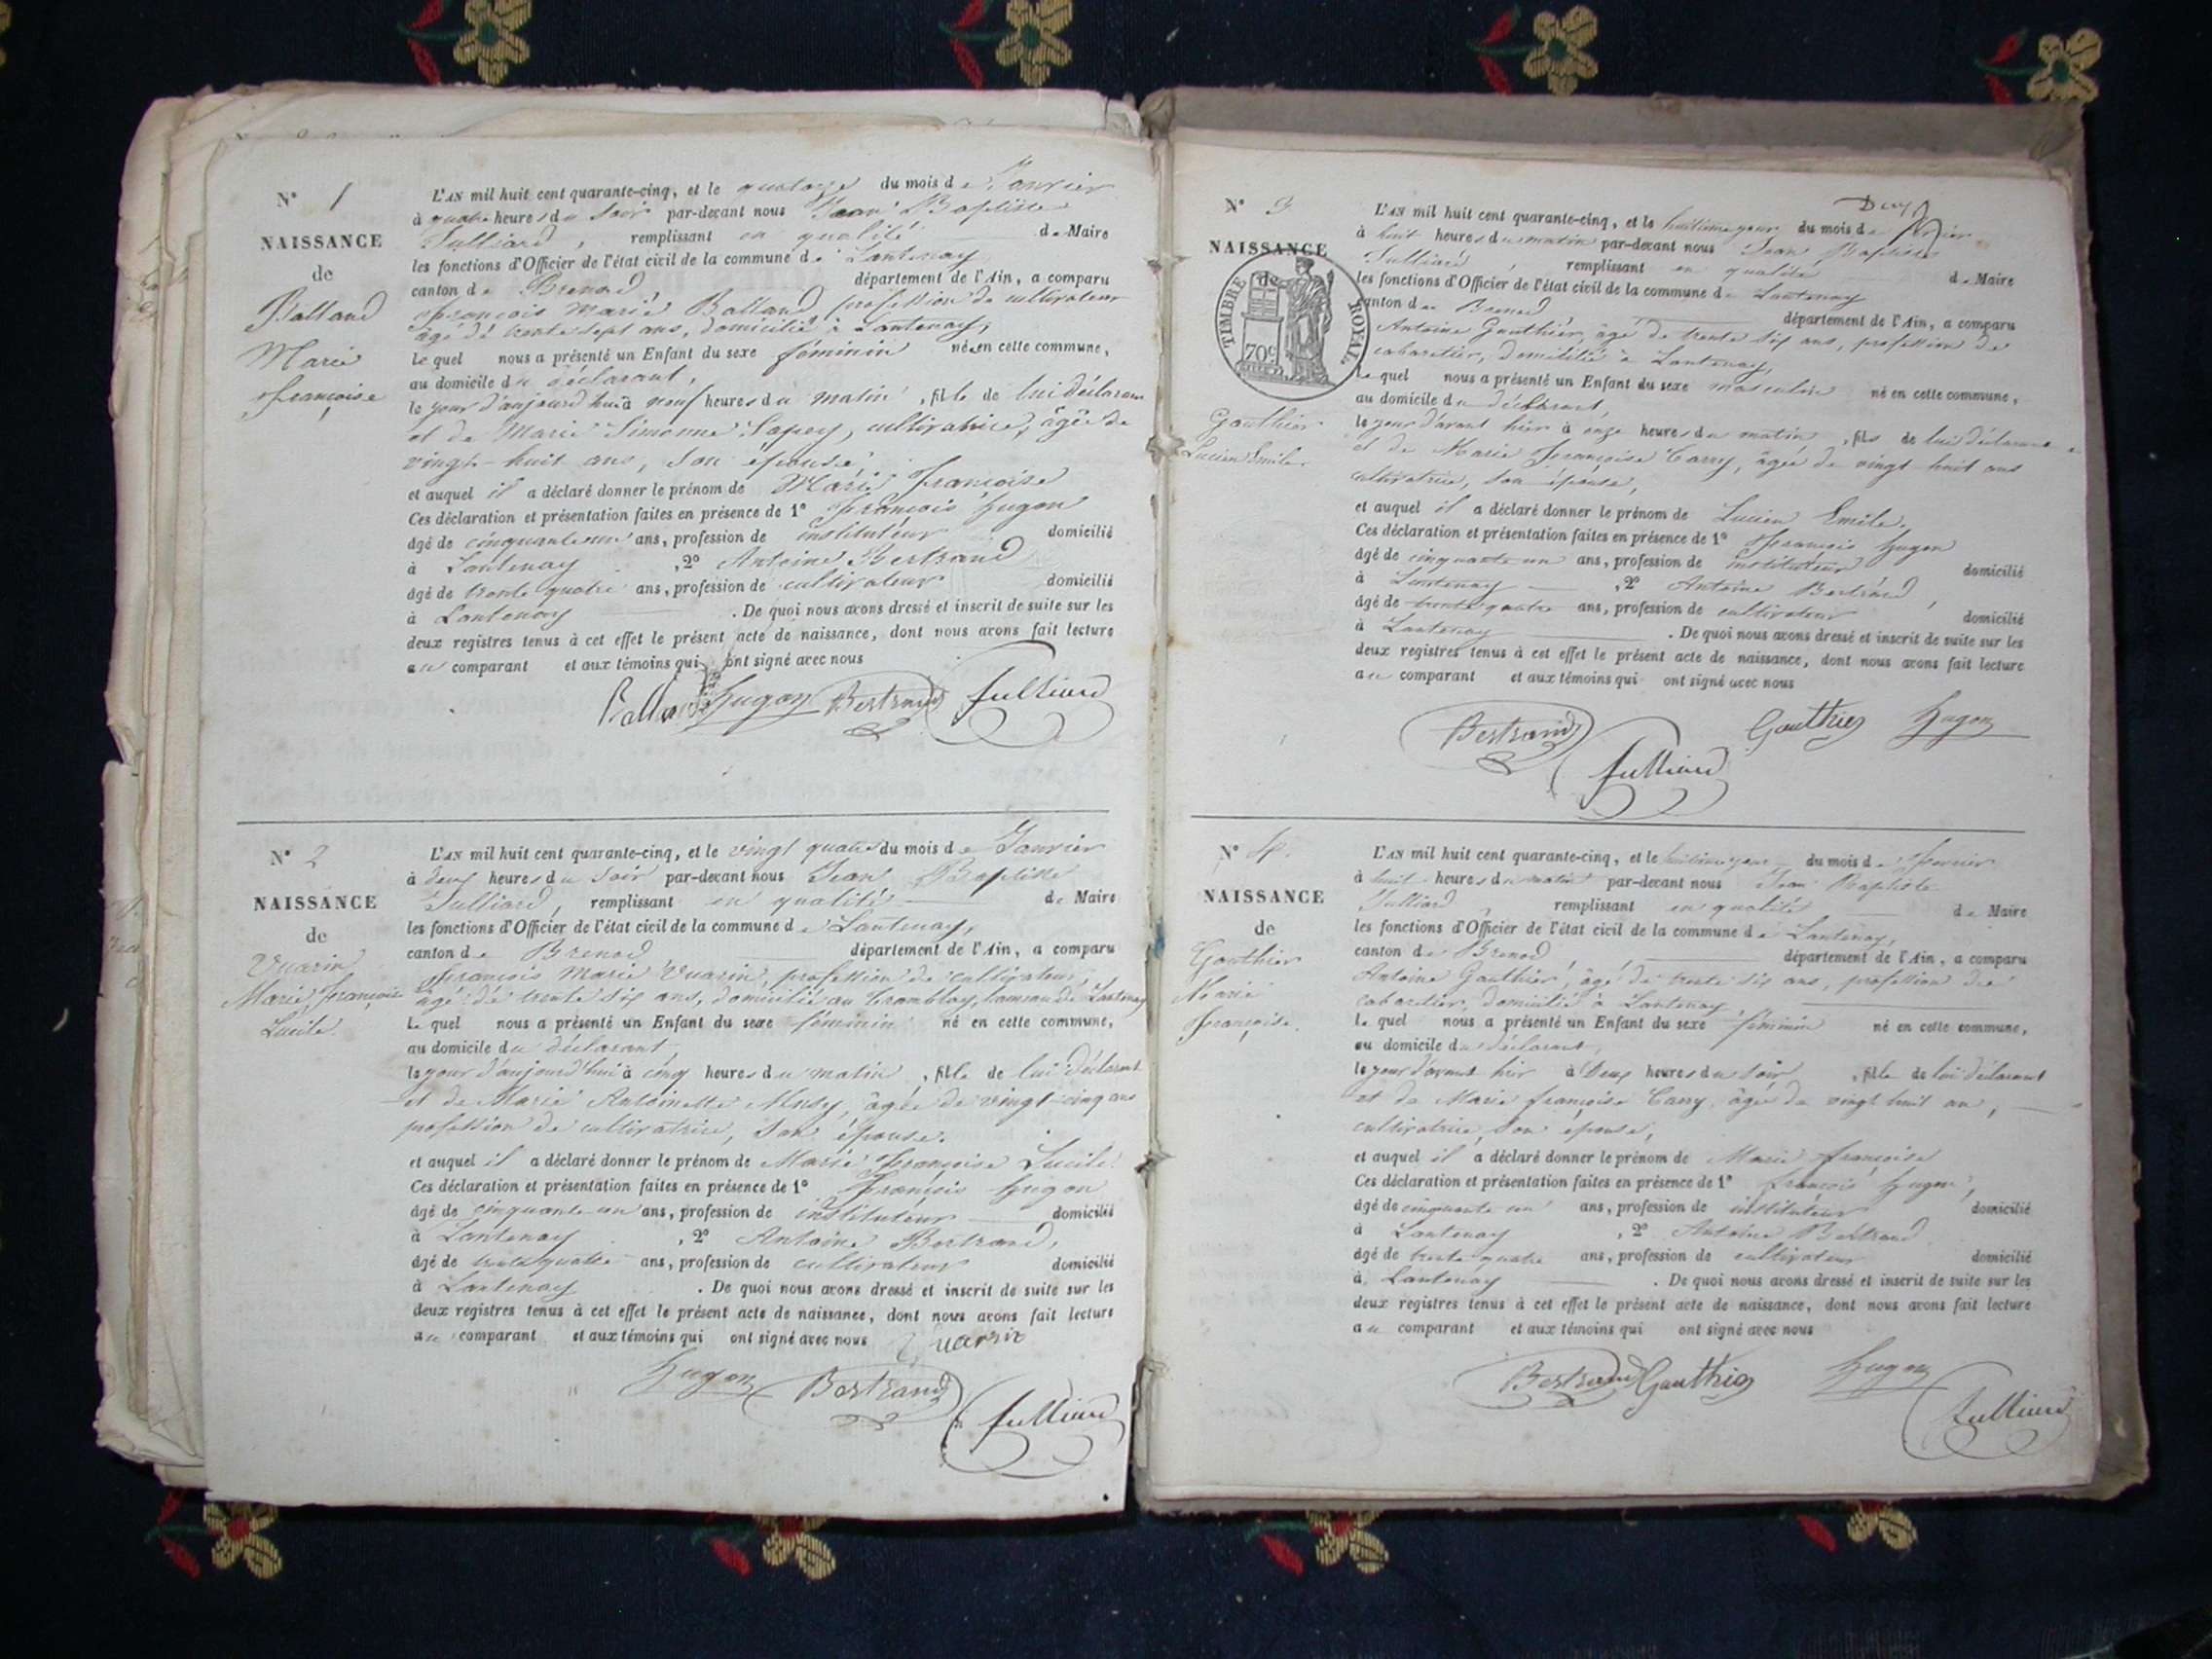 N° 1
NAISSANCE
de
Balland
Marie
françoise
L'AN mil huit cent quarante-cinq, et le quatorze du mois de Janvier
à quatre heures du Soir par-devant nous Jean Baptiste
Julliard, remplissant en qualité de Maire
les fonctions d'Officier de l'état civil de la commune de Lantenay
canton de Brenod département de l'Ain, a comparu
françois Marie Balland, profession de cultivateur
âgé de trente sept ans, domicilié à Lantenay,
Le quel nous a présenté un Enfant du sexe féminin né en cette commune,
au domicile du déclarant,
le jour d'aujourd'hui à neuf heures du matin, fille de lui déclarant
et de Marie Simonne Sapey, cultivatrice, âgée de
vingt-huit ans, son épouse,
et auquel il a déclaré donner le prénom de Marie françoise
Ces déclaration et présentation faites en présence de 1° françois hugon
âgé de cinquante un ans, profession de instituteur domicilié
à Lantenay, 2° Antoine Bertrand
âgé de trente quatre ans, profession de cultivateur domicilié
à Lantenay. De quoi nous avons dressé et inscrit de suite sur les
deux registres tenus à cet effet le présent acte de naissance, dont nous avons fait lecture
au comparant et aux témoins qui ont signé avec nous
Balland hugon Bertrand Julliard
N° 2
NAISSANCE
de
Vuarin
Marie françoise
Lucile.
L'AN mil huit cent quarante-cinq, et le vingt quatre du mois de Janvier
à deux heures du Soir par-devant nous Jean Baptiste
Julliard, remplissant en qualité de Maire
les fonctions d'Officier de l'état civil de la commune de Lantenay,
canton de Brenod département de l'Ain, a comparu
françois Marie Vuarin, profession de cultivateur,
âgé de trente six ans, domicilié au Tremblay, hameau de Lantenay
Le quel nous a présenté un Enfant du sexe féminin né en cette commune,
au domicile du déclarant
le jour d'aujourd'hui à cinq heures du matin, fille de lui déclarant
et de Marie Antoinette Musy, âgée de vingt-cinq ans
profession de cultivatrice, son épouse.
et auquel il a déclaré donner le prénom de Marie françoise Lucile.
Ces déclaration et présentation faites en présence de 1° françois hugon
âgé de cinquante-un ans, profession de instituteur domicilié
à Lantenay, 2° Antoine Bertrand,
âgé de trente quatre ans, profession de cultivateur domicilié
à Lantenay. De quoi nous avons dressé et inscrit de suite sur les
deux registres tenus à cet effet le présent acte de naissance, dont nous avons fait lecture
au comparant et aux témoins qui ont signé avec nous Vuarin
hugon Bertrand Julliard
N° 3
NAISSANCE
de
TIMBRE ROYAL
70c
Gauthier
Lucien Emile.
L'AN mil huit cent quarante-cinq, et le huitième jour du mois de février
à huit heures du matin par-devant nous Jean Baptiste
Julliard, remplissant en qualité de Maire
les fonctions d'Officier de l'état civil de la commune de Lantenay
canton de Brenod département de l'Ain, a comparu
Antoine Gauthier, âgé de trente six ans, profession de
cabaretier, domicilié à Lantenay,
Le quel nous a présenté un Enfant du sexe masculin né en cette commune,
au domicile du déclarant,
le jour d'avant hier à onze heures du matin, fils de lui déclarant
et de Marie françoise Carry, âgée de vingt-huit ans
cultivatrice, son épouse,
et auquel il a déclaré donner le prénom de Lucien Emile.
Ces déclaration et présentation faites en présence de 1° françois hugon
âgé de cinquante un ans, profession de instituteur domicilié
à Lantenay, 2° Antoine Bertrand,
âgé de trente quatre ans, profession de cultivateur domicilié
à Lantenay. De quoi nous avons dressé et inscrit de suite sur les
deux registres tenus à cet effet le présent acte de naissance, dont nous avons fait lecture
au comparant et aux témoins qui ont signé avec nous
Bertrand Julliard Gauthier hugon
N° 4.
NAISSANCE
de
Gauthier
Marie
françoise.
L'AN mil huit cent quarante-cinq, et le huitième jour du mois de février
à huit heures du matin par-devant nous Jean Baptiste
Julliard remplissant en qualité de Maire
les fonctions d'Officier de l'état civil de la commune de Lantenay,
canton de Brenod département de l'Ain, a comparu
Antoine Gauthier, âgé de trente six ans, profession de
cabaretier, domicilié à Lantenay,
Le quel nous a présenté un Enfant du sexe féminin né en cette commune,
au domicile du déclarant,
le jour d'avant hier à deux heures du soir, fille de lui déclarant
et de Marie françoise Carry, âgée de vingt huit ans,
cultivatrice, son épouse,
et auquel il a déclaré donner le prénom de Marie françoise
Ces déclaration et présentation faites en présence de 1° françois hugon,
âgé de cinquante un ans, profession de instituteur domicilié
à Lantenay, 2° Antoine Bertrand
âgé de trente quatre ans, profession de cultivateur domicilié
à Lantenay. De quoi nous avons dressé et inscrit de suite sur les
deux registres tenus à cet effet le présent acte de naissance, dont nous avons fait lecture
au comparant et aux témoins qui ont signé avec nous
Bertrand Gauthier hugon Julliard